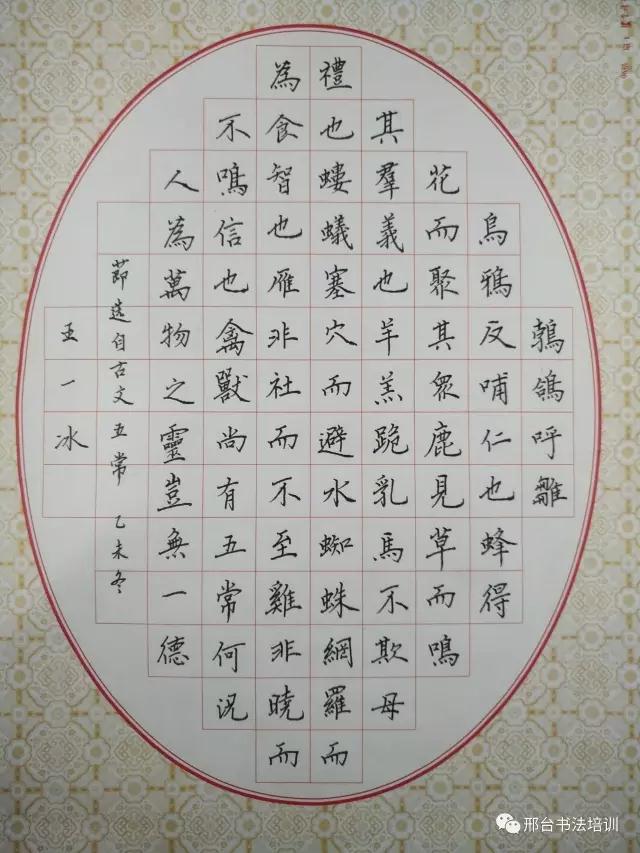 鵓鴿呼雛
烏鴉反哺仁也蜂得
花而聚其眾鹿見草而鳴
其羣義也羊羔跪乳馬不欺母
禮也螻蟻塞穴而避水蜘蛛網羅而
為食智也雁非社而不至雞非曉而
不鳴信也禽獸尚有五常何況
人為萬物之靈豈無一德
節选自古文五常 乙未冬
王一冰
邢台书法培训